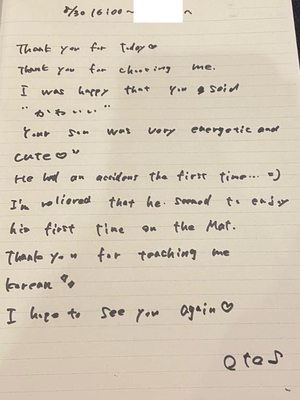 8/30 16:00 ~ ~
Thank you for today♡
Thank you for choosing me.
I was happy that you said
"かわいい"
Your son was very energetic and
cute♡
He had an accident the first time... =)
I'm relieved that he seemed to enjoy
his first time on the Mat.
Thank you for teaching me
korean
I hope to see you again♡